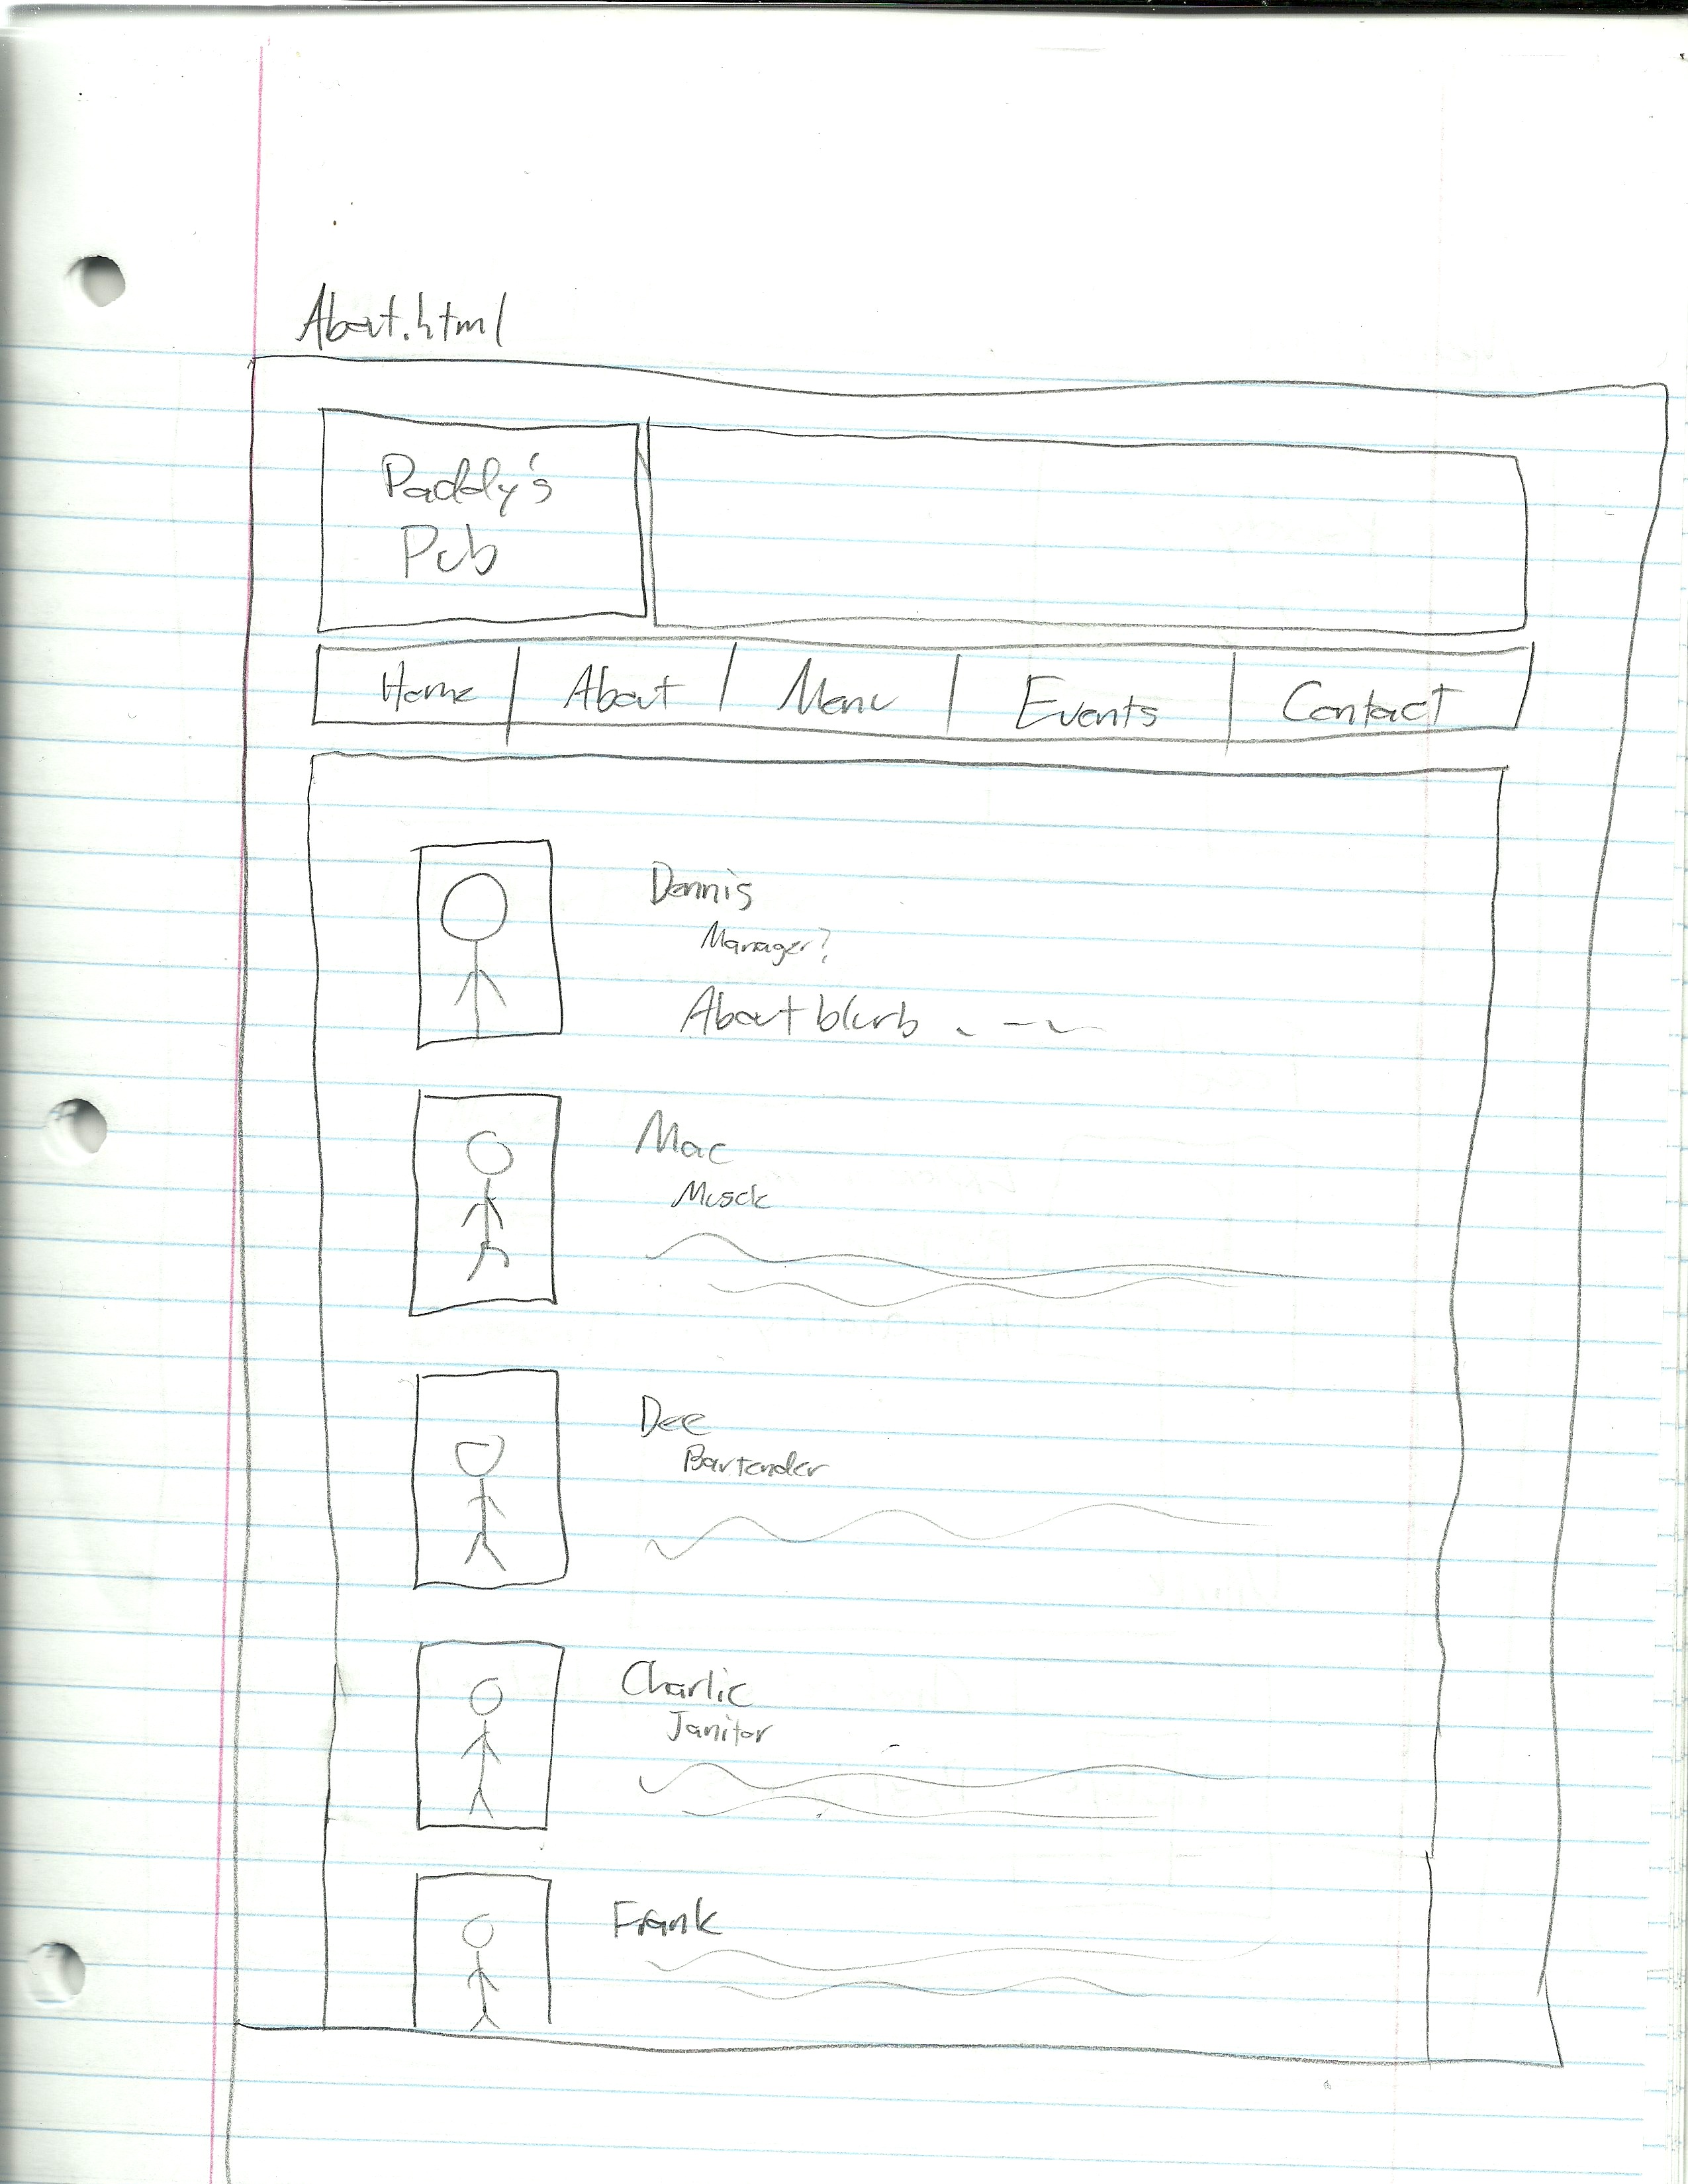 About.html
Paddy's
Pub
Home About Menu Events Contact
Dennis
Manager?
About blurb
Mac
Muscle
Dee
Bartender
Charlie
Janitor
Frank